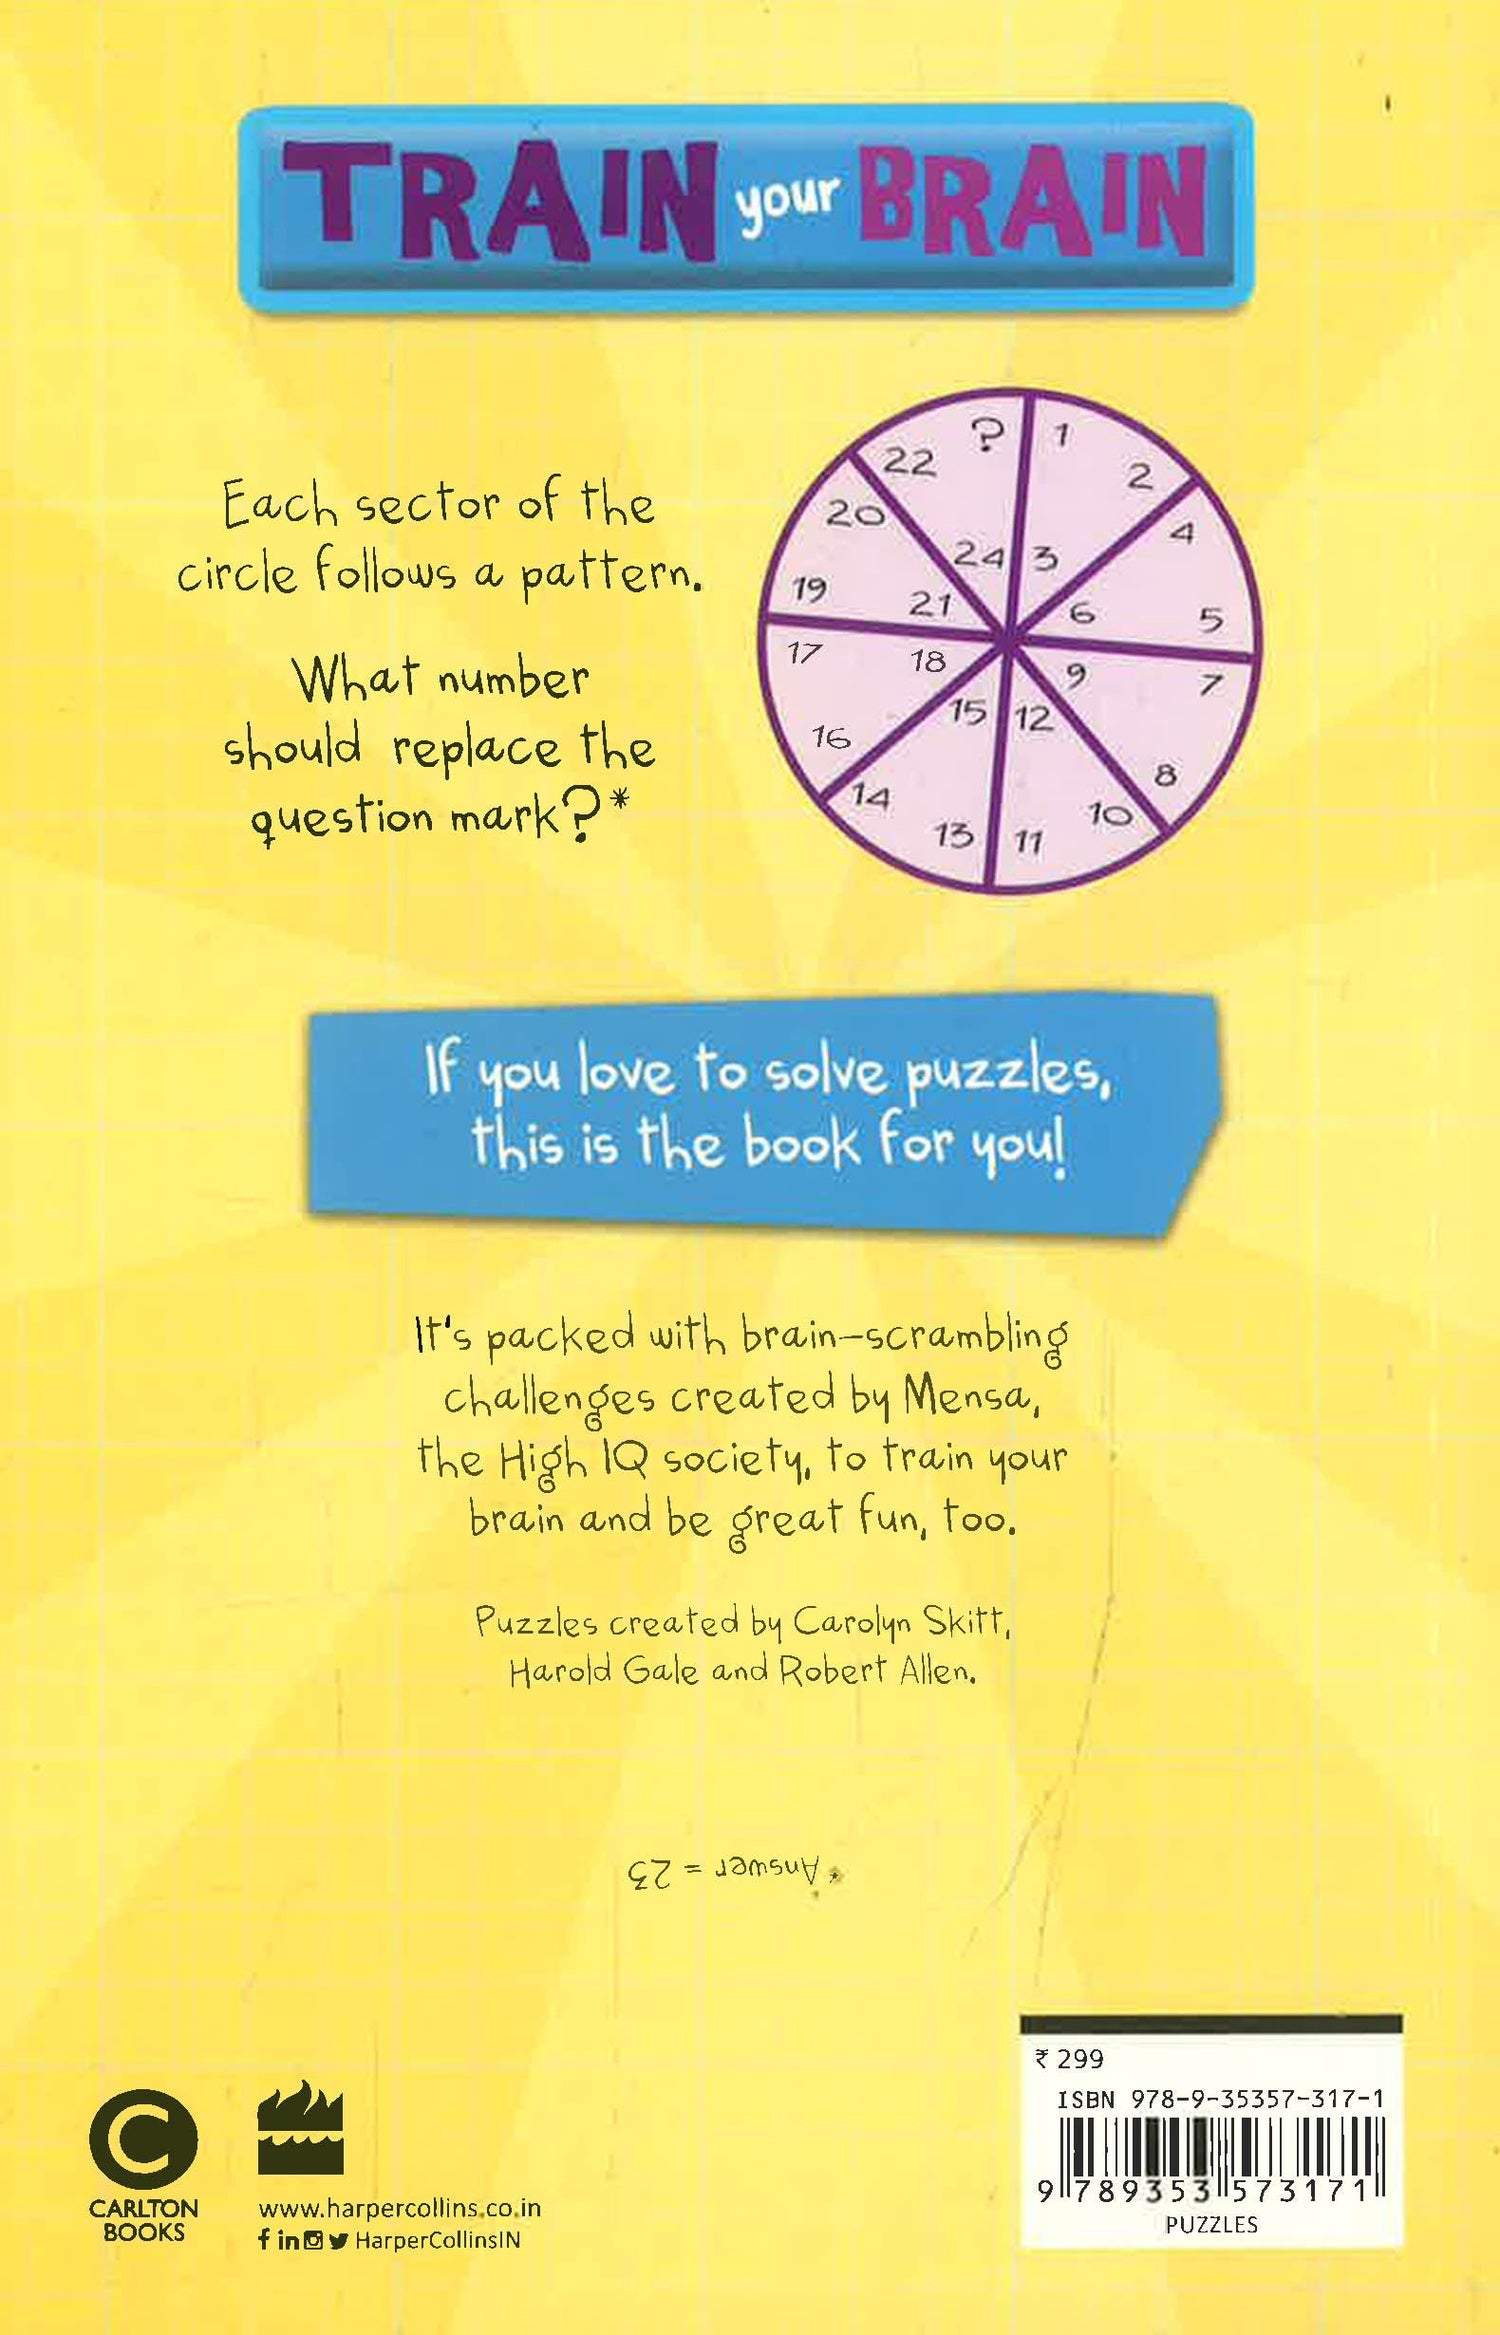 TRAIN your BRAIN
Each sector of the
circle follows a pattern.
What number
should replace the
question mark?*
? 1
22 2
20 4
24 3
19 21 6 5
17 18 9 7
15 12
16 8
14 10
13 11
If you love to solve puzzles,
this is the book for you!
It's packed with brain-scrambling
challenges created by Mensa,
the High IQ society, to train your
brain and be great fun, too.
Puzzles created by Carolyn Skitt,
Harold Gale and Robert Allen.
* Answer = 23
₹ 299
ISBN 978-9-35357-317-1
9 789353 573171
PUZZLES
CARLTON
BOOKS
www.harpercollins.co.in
HarperCollinsIN